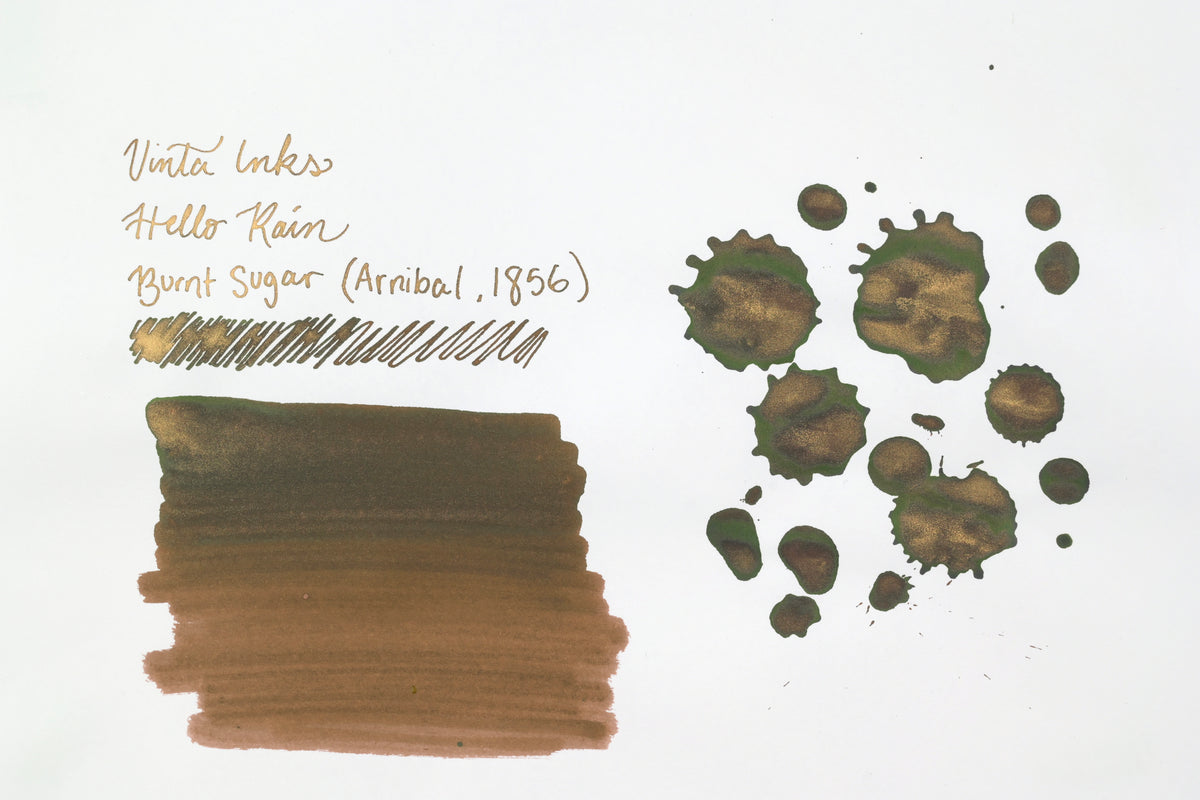 Vinta Inks
Hello Rain
Burnt Sugar (Arnibal, 1856)